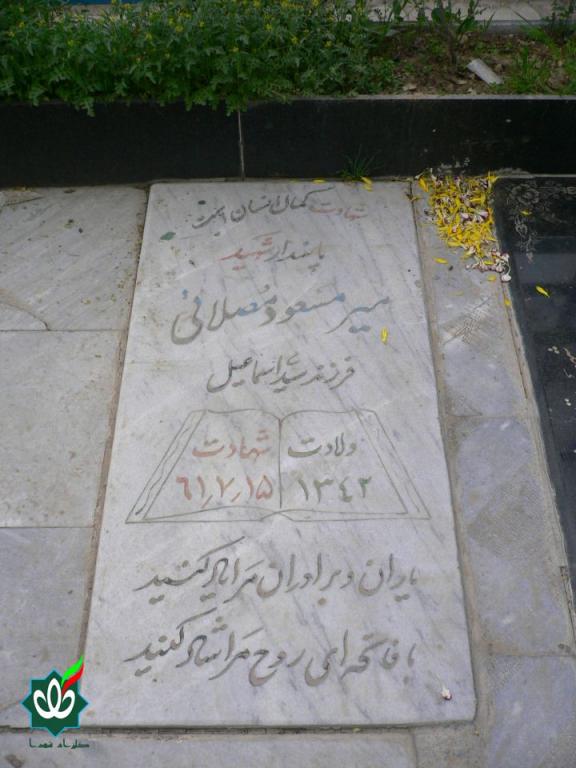 شهادت کمال انسان است
پاسدار شهید
میر مسعود مصلائی
فرزند سید اسماعیل
ولادت
۱۳٤۲
شهادت
٦۱٫۷٫۱۵
یاران و برادران مرا یاد کنید
با فاتحه ای روح مرا شاد کنید
گلزار شهدا